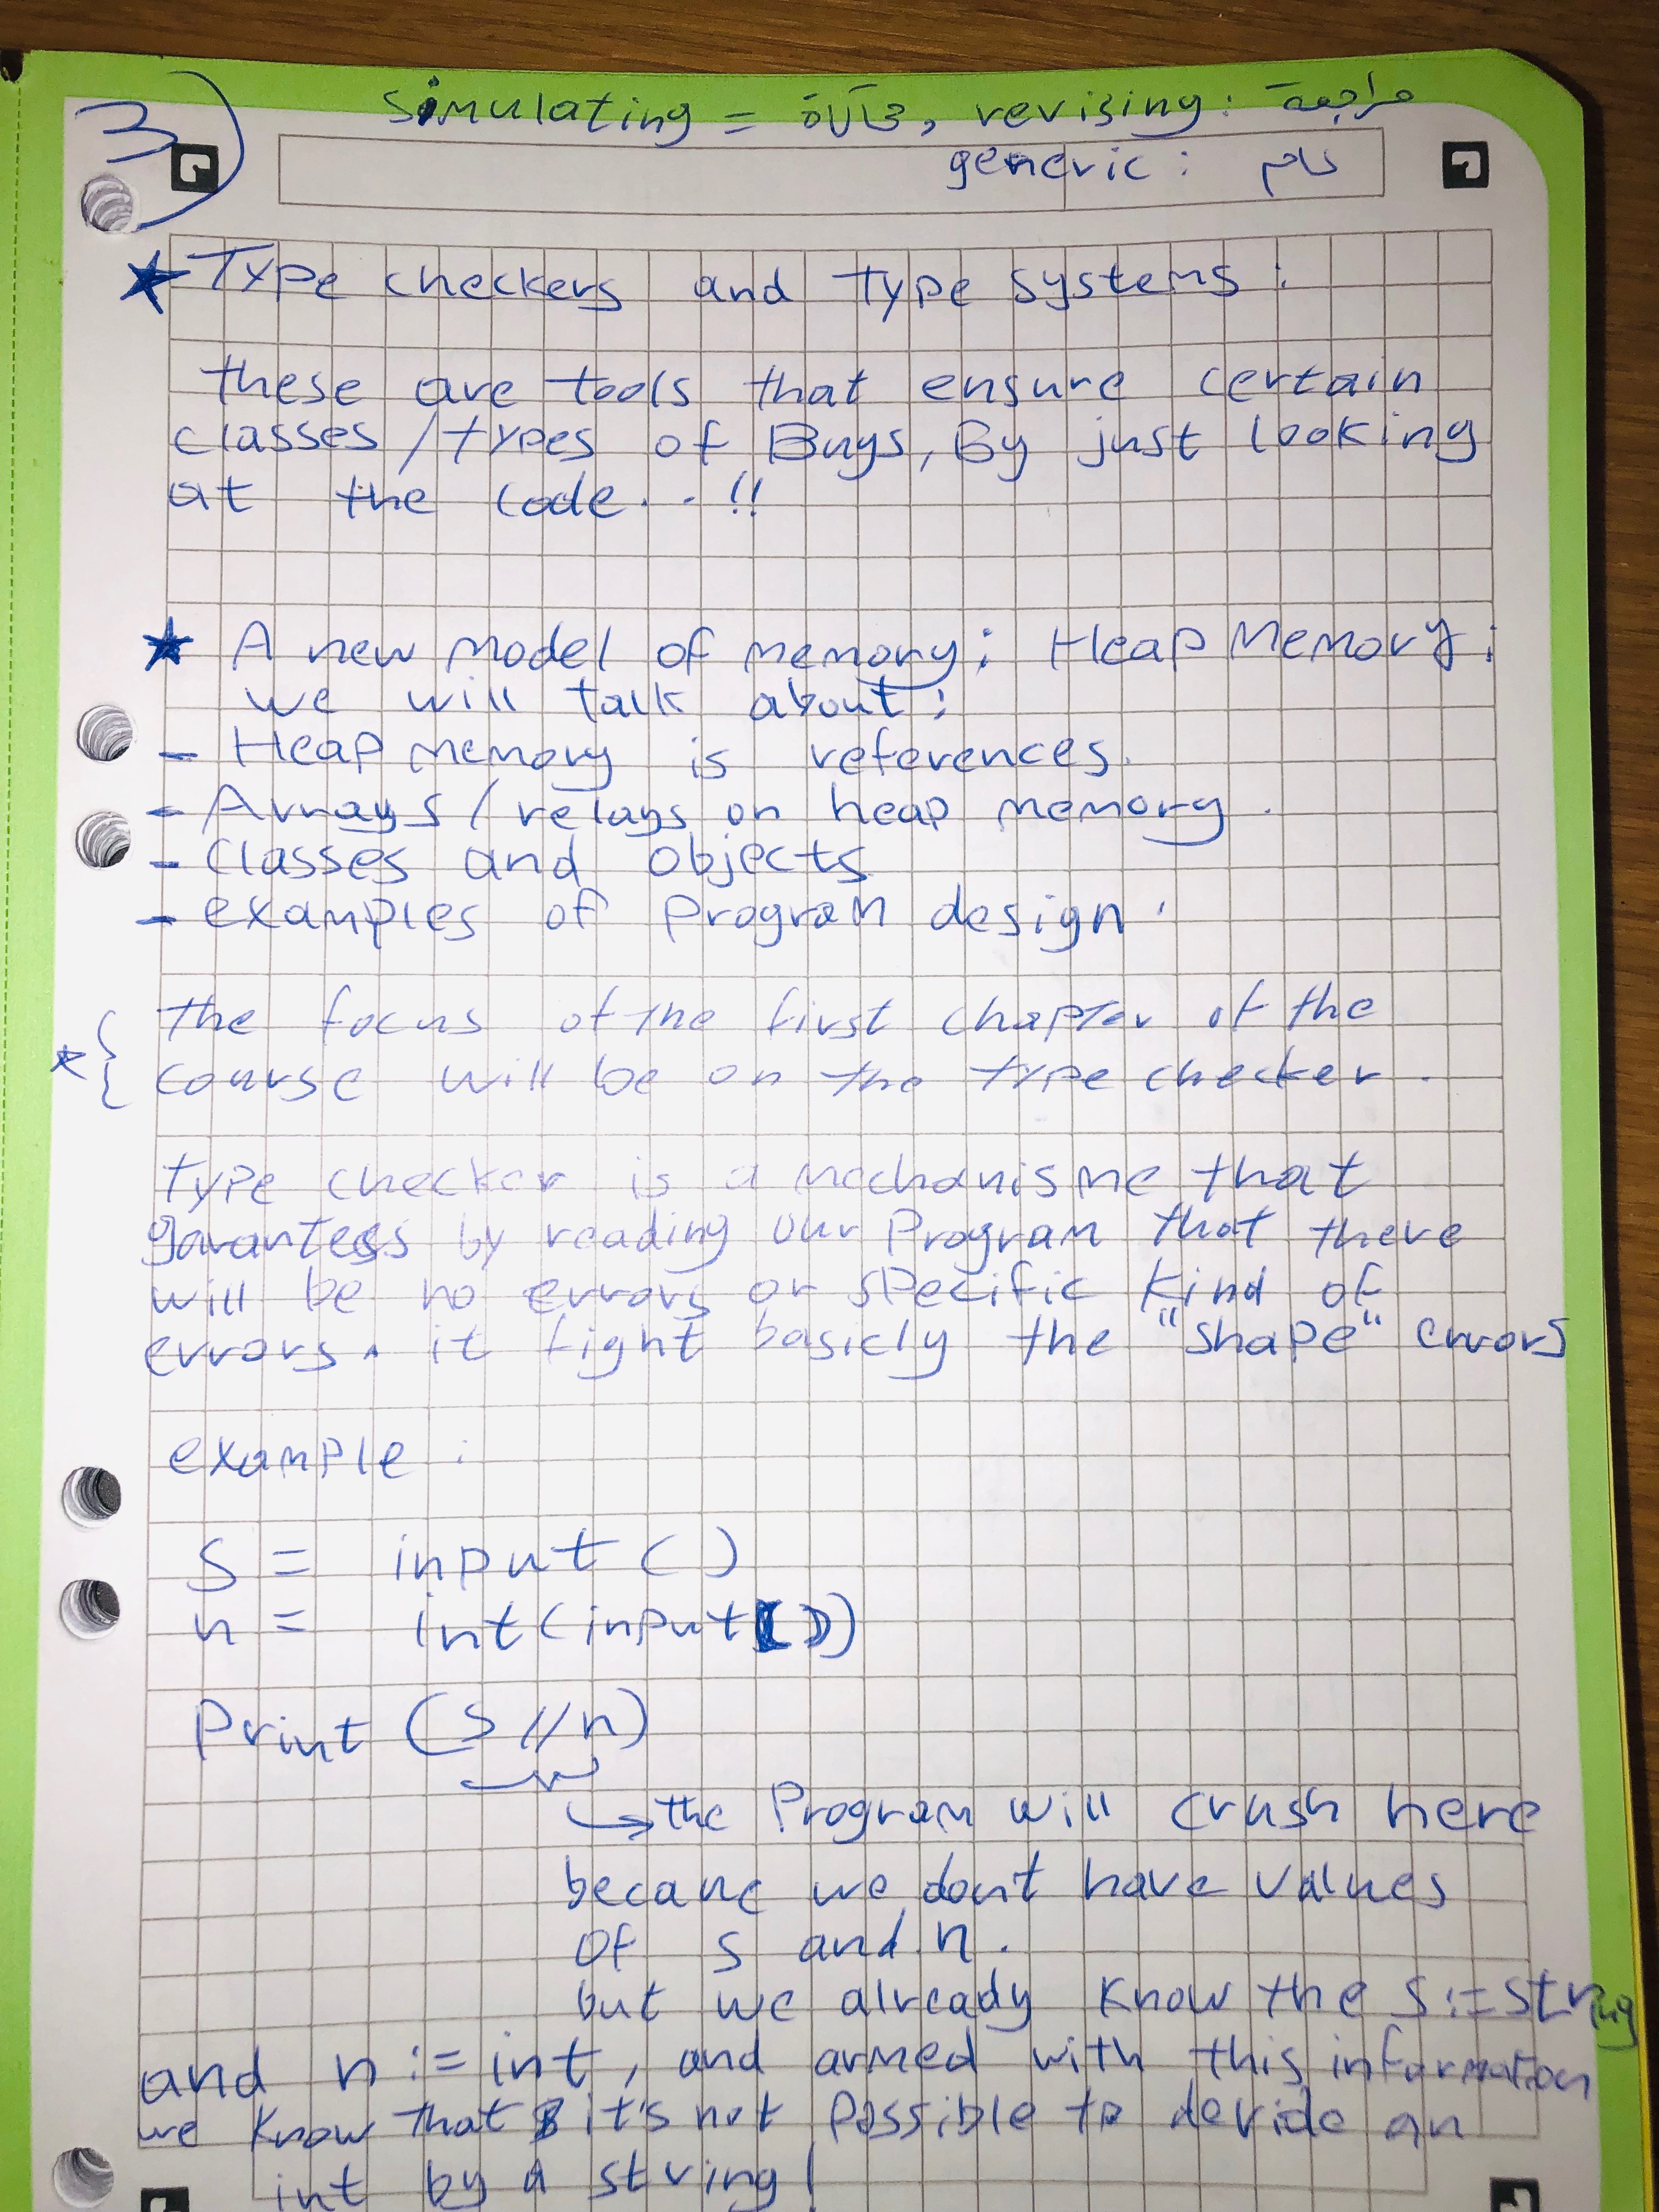 3)
simulating = محاكاة, revising: مراجعة
generic: عام
★ Type checkers and Type systems:
these are tools that ensure certain
classes/types of Bugs, By just looking
at the code...!!
★ A new model of memory: Heap Memory:
we will talk about:
- Heap memory is references.
- Arrays / relays on heap memory.
- Classes and objects
- examples of program design.
* { The focus of the first chapter of the
course will be on the type checker.
Type checker is a mechanisme that
garantees by reading our Program that there
will be no errors or specific Kind of
errors. it fight basicly the "shape" errors
example:
S = input ()
n = int(input())
Print (s // n)
↳ the Program will crush here
becaue we don't have values
of s and n.
but we already know the s := string
and n := int, and armed with this information
we know that it's not possible to devide an
int by a string!